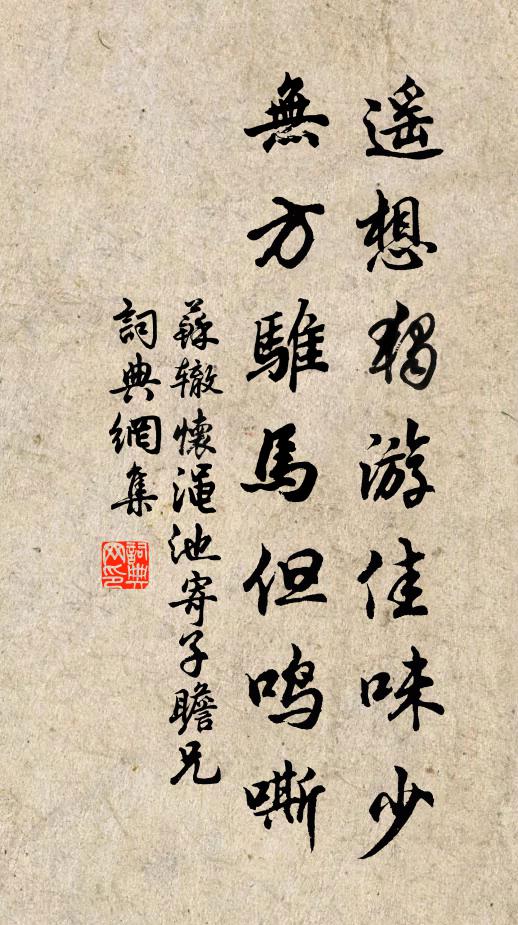 遥想獨游佳味少
無方騅馬但鳴嘶
蘇辙懷澠池寄子瞻兄
詞典網集
詞典网印